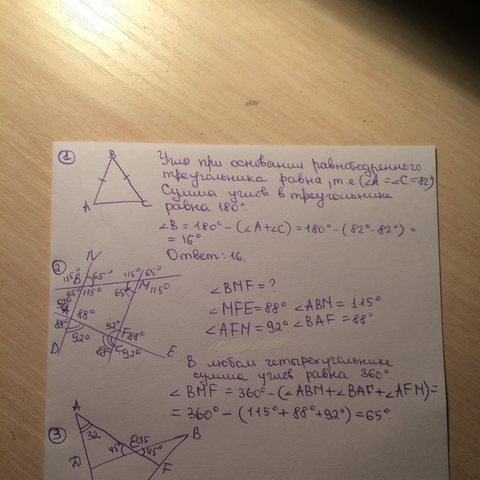 ① B
Углы при основании равнобедренного
треугольника равна, т.е (∠A = ∠C = 82)
Сумма углов в треугольнике
равна 180°
A C
∠B = 180° - (∠A + ∠C) = 180° - (82° - 82°) =
= 16°
Ответ: 16.
② N
115° B 65° 115° 65°
65° 115° 65° M 115°
∠BMF = ?
92° A 88°
∠MFE = 88° ∠ABM = 115°
88° 92° 92°
∠AFM = 92° ∠BAF = 88°
F 88°
D 88° 92° E
В любом четырехугольнике
сумма углов равна 360°.
∠BMF = 360° - (∠ABM + ∠BAF + ∠AFM) =
= 360° - (115° + 88° + 92°) = 65°.
③ A
32 135 B
45° 45°
D F